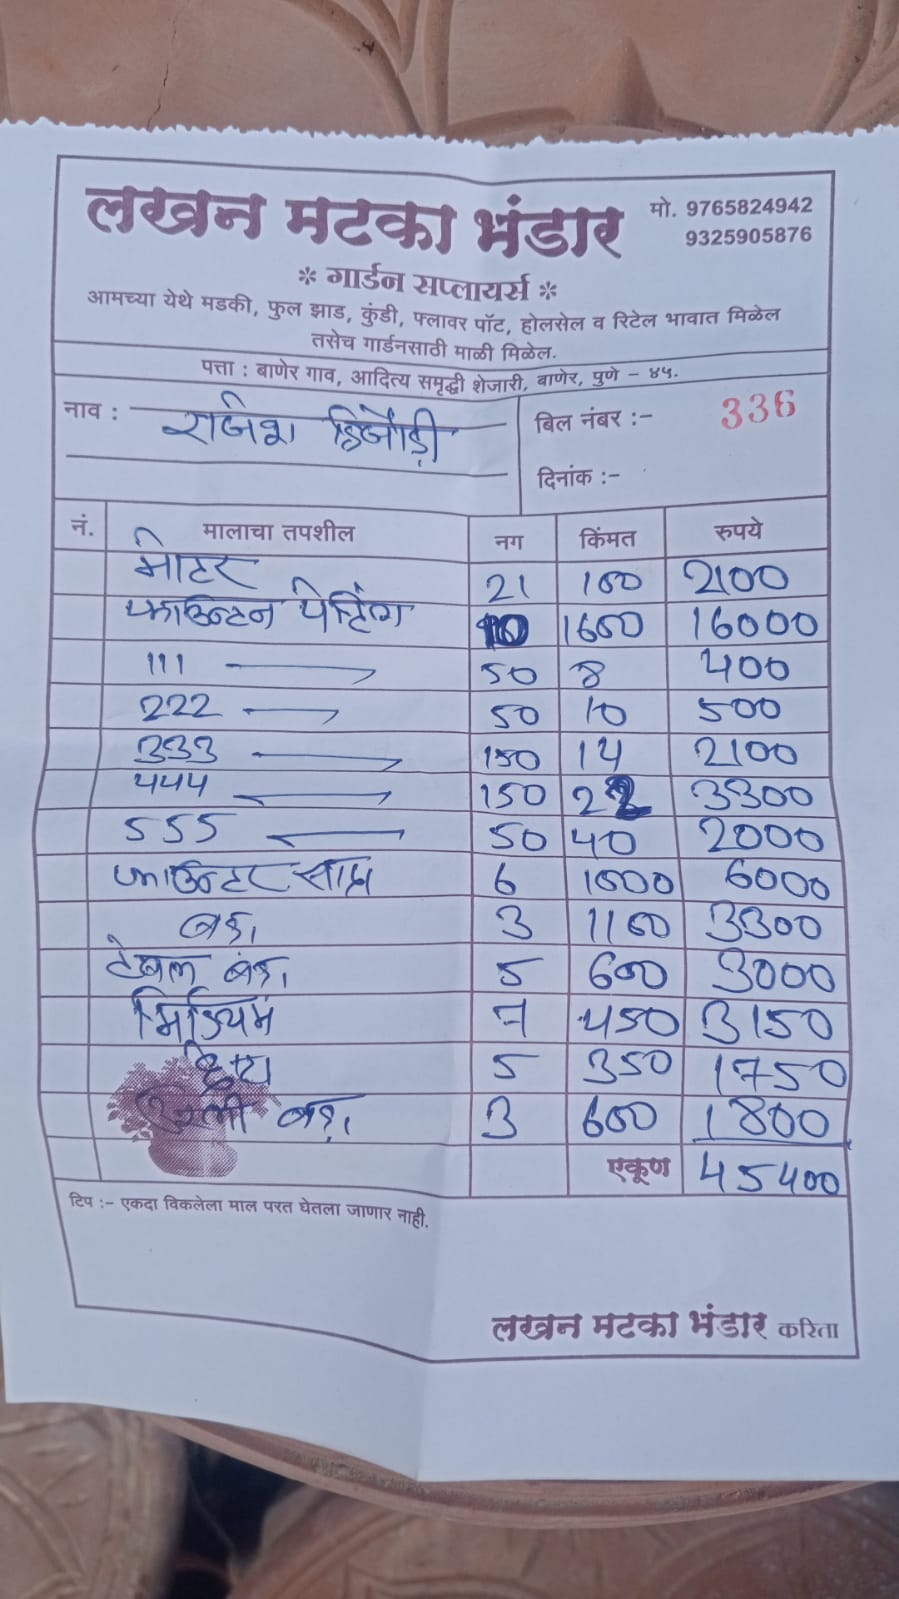 लखन मटका भंडार
मो. 9765824942
9325905876
* गार्डन सप्लायर्स *
आमच्या येथे मडकी, फुल झाड, कुंडी, फ्लावर पॉट, होलसेल व रिटेल भावात मिळेल
तसेच गार्डनसाठी माळी मिळेल.
पत्ता : बाणेर गाव, आदित्य समृद्धी शेजारी, बाणेर, पुणे - ४५.
नाव : राजेश
बिल नंबर :- 336
दिनांक :-
नं. मालाचा तपशील नग किंमत रुपये
मोटर 21 100 2100
फाऊन्टन पेन्टिंग 10 1600 16000
111 50 8 400
222 50 10 500
333 150 14 2100
444 150 22 3300
555 50 40 2000
फाऊन्टर 6 1000 6000
बडा 3 1100 3300
टेबल बडा 5 600 3000
मिडियम 7 450 3150
5 350 1750
बडा 3 600 1800
एकूण 45400
टिप :- एकदा विकलेला माल परत घेतला जाणार नाही.
लखन मटका भंडार करिता